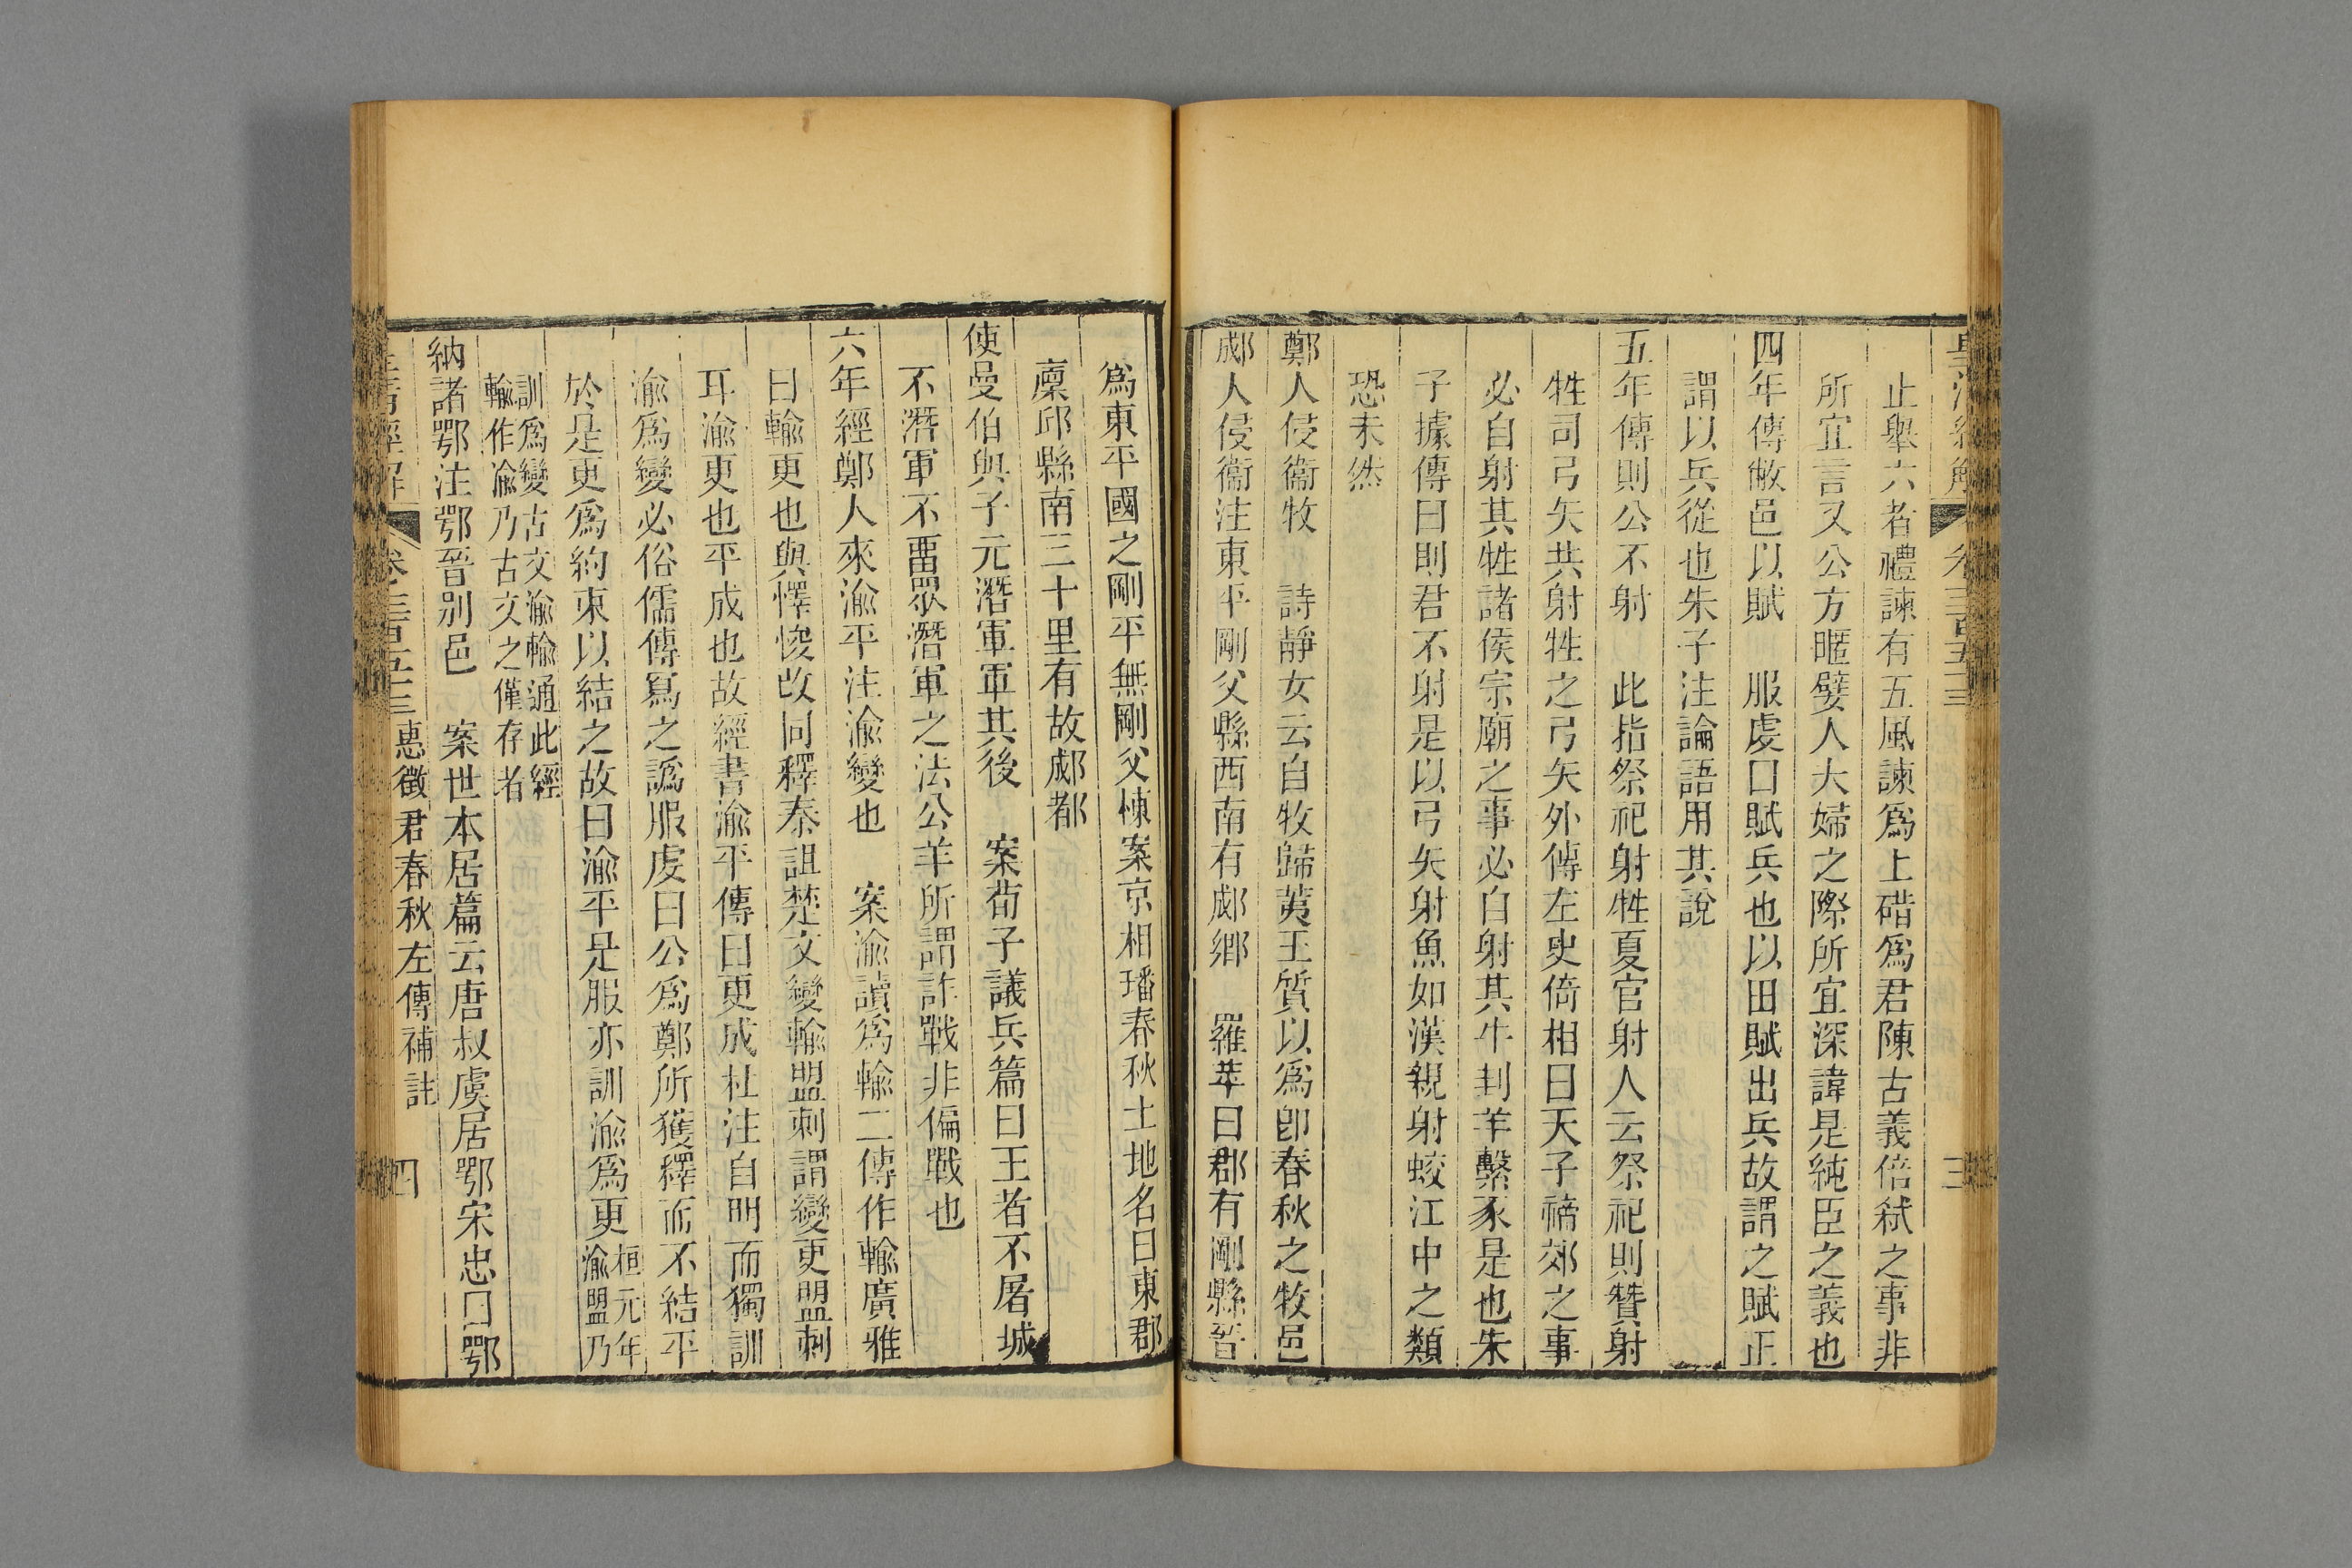 皇清經解 卷三百五十三 三
止舉六者禮諫有五風諫爲上碏爲君陳古義倍弑之事非
所宜言又公方暱嬖人夫婦之際所宜深諱是純臣之義也
四年傳敝邑以賦 服虔曰賦兵也以田賦出兵故謂之賦正
謂以兵從也朱子注論語用其說
五年傳則公不射 此指祭祀射牲夏官射人云祭祀則贊射
牲司弓矢共射牲之弓矢外傳左史倚相曰天子禘郊之事
必自射其牲諸侯宗廟之事必自射其牛刲羊擊豕是也朱
子據傳曰則君不射是以弓矢射魚如漢親射蛟江中之類
恐未然
鄭人侵衞牧 詩靜女云自牧歸荑王質以爲卽春秋之牧邑
郕人侵衞注東平剛父縣西南有郕鄉 羅苹曰郡有剛縣晉
爲東平國之剛平無剛父棟案京相璠春秋土地名曰東郡
廩邱縣南三十里有故郕都
使曼伯與子元潛軍軍其後 案荀子議兵篇曰王者不屠城
不潛軍不畱眾潛軍之法公羊所謂詐戰非偏戰也
六年經鄭人來渝平注渝變也 案渝讀爲輸二傳作輸廣雅
曰輸更也與懌悛改同釋秦詛楚文變輸盟刺謂變更盟刺
耳渝更也平成也故經書渝平傳曰更成杜注自明而獨訓
渝爲變必俗儒傳寫之譌服虔曰公爲鄭所獲釋而不結平
於是更爲約束以結之故曰渝平是服亦訓渝爲更桓元年渝盟乃
訓爲變古文渝輸通此經
輸作渝乃古文之僅存者
納諸鄂注鄂晉別邑 案世本居篇云唐叔虞居鄂宋忠曰鄂
皇清經解 卷三百五十三 惠徵君春秋左傳補註 四